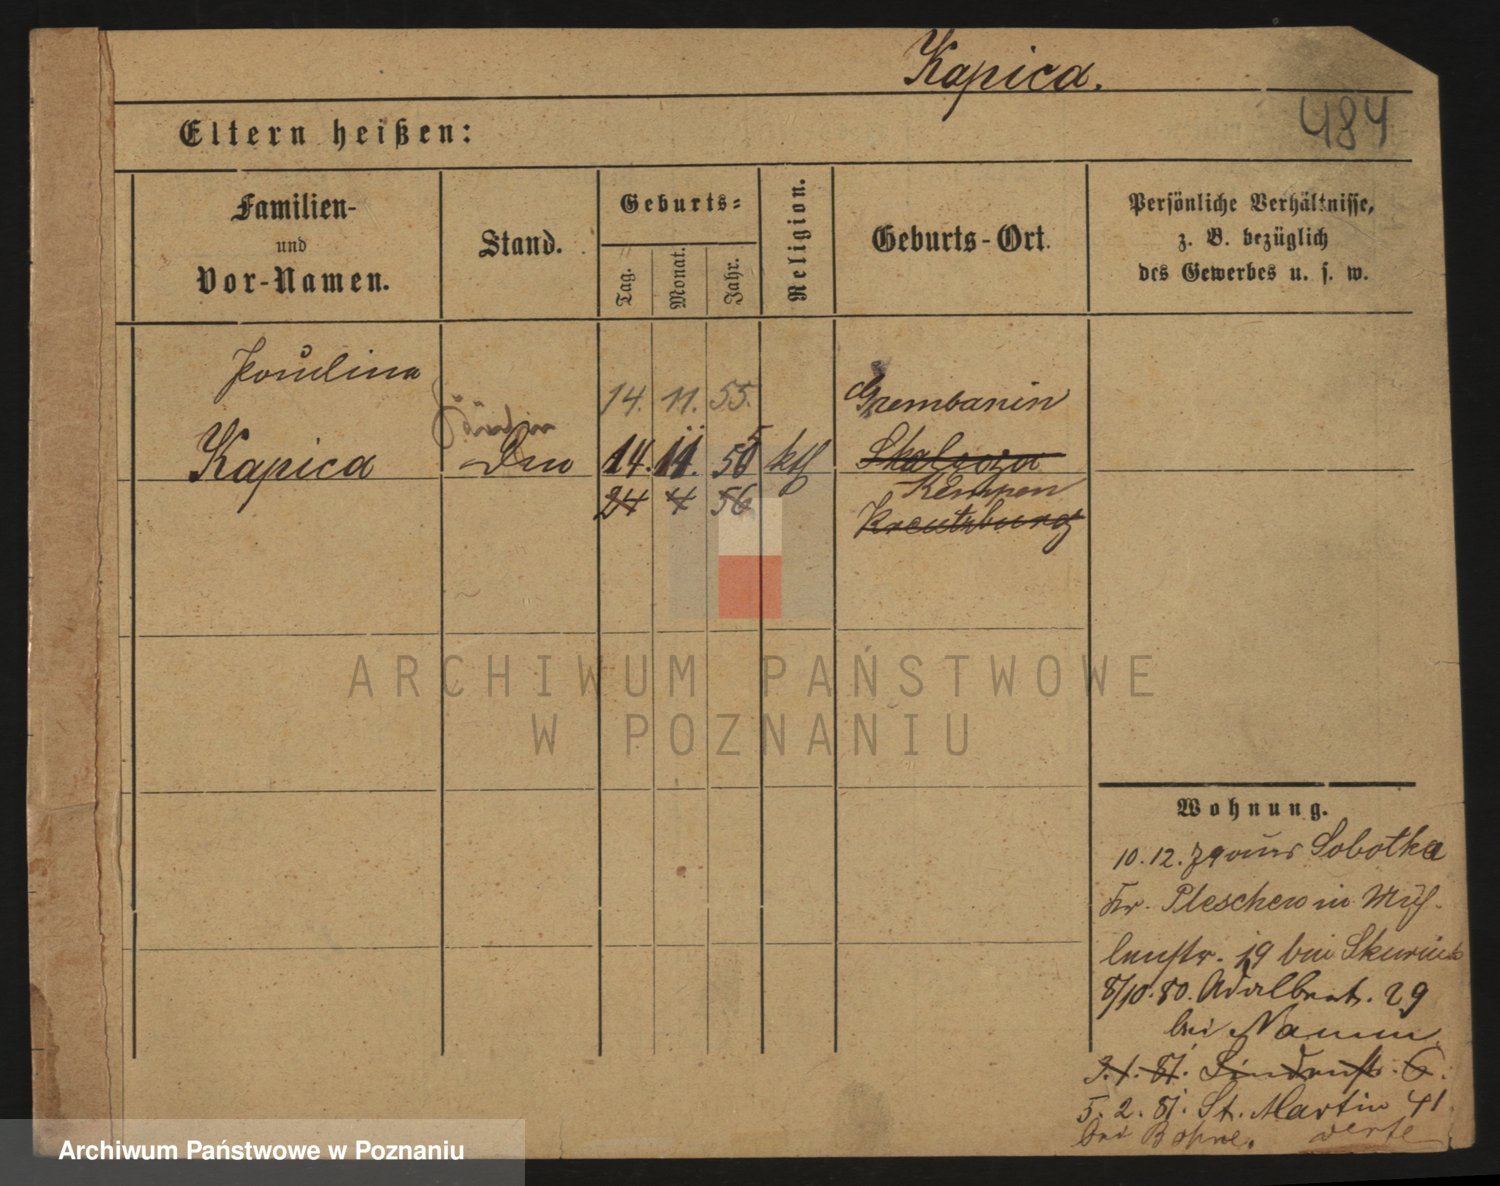 Kapica.
484
Eltern heißen:
Familien-
und
Vor-Namen.
Stand.
Geburts-
Tag.
Monat.
Jahr.
Religion.
Geburts-Ort.
Persönliche Verhältnisse,
z. B. bezüglich
des Gewerbes u. s. w.
Paulina
Kapica
14. 11. 55.
14. 11. 55 ktl
24 4 56
Grembanin
Skalroza
Kempen
Kreutzburg
ARCHIWUM PAŃSTWOWE
W POZNANIU
Wohnung.
10. 12. 79 aus Sobotka
Kr. Pleschen in Müh-
lenstr. 19 bei
8/10. 80. Adalbert. 29
bei Namm
3. 1. 81. Lindenstr. 6.
5. 2. 81. St. Martin 41
bei verte
Archiwum Państwowe w Poznaniu